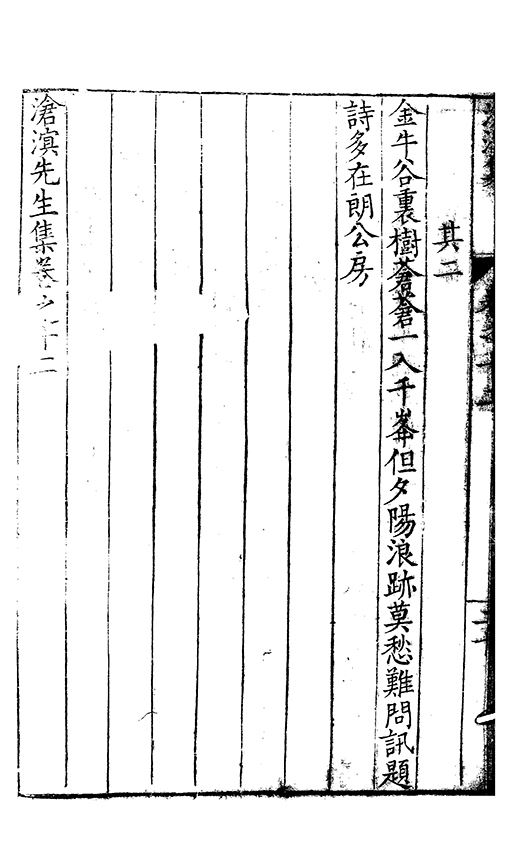 其二
金牛谷裏樹蒼蒼一入千峯但夕陽浪跡莫愁難問訊題
詩多在朗公房
滄溟先生集卷之十二